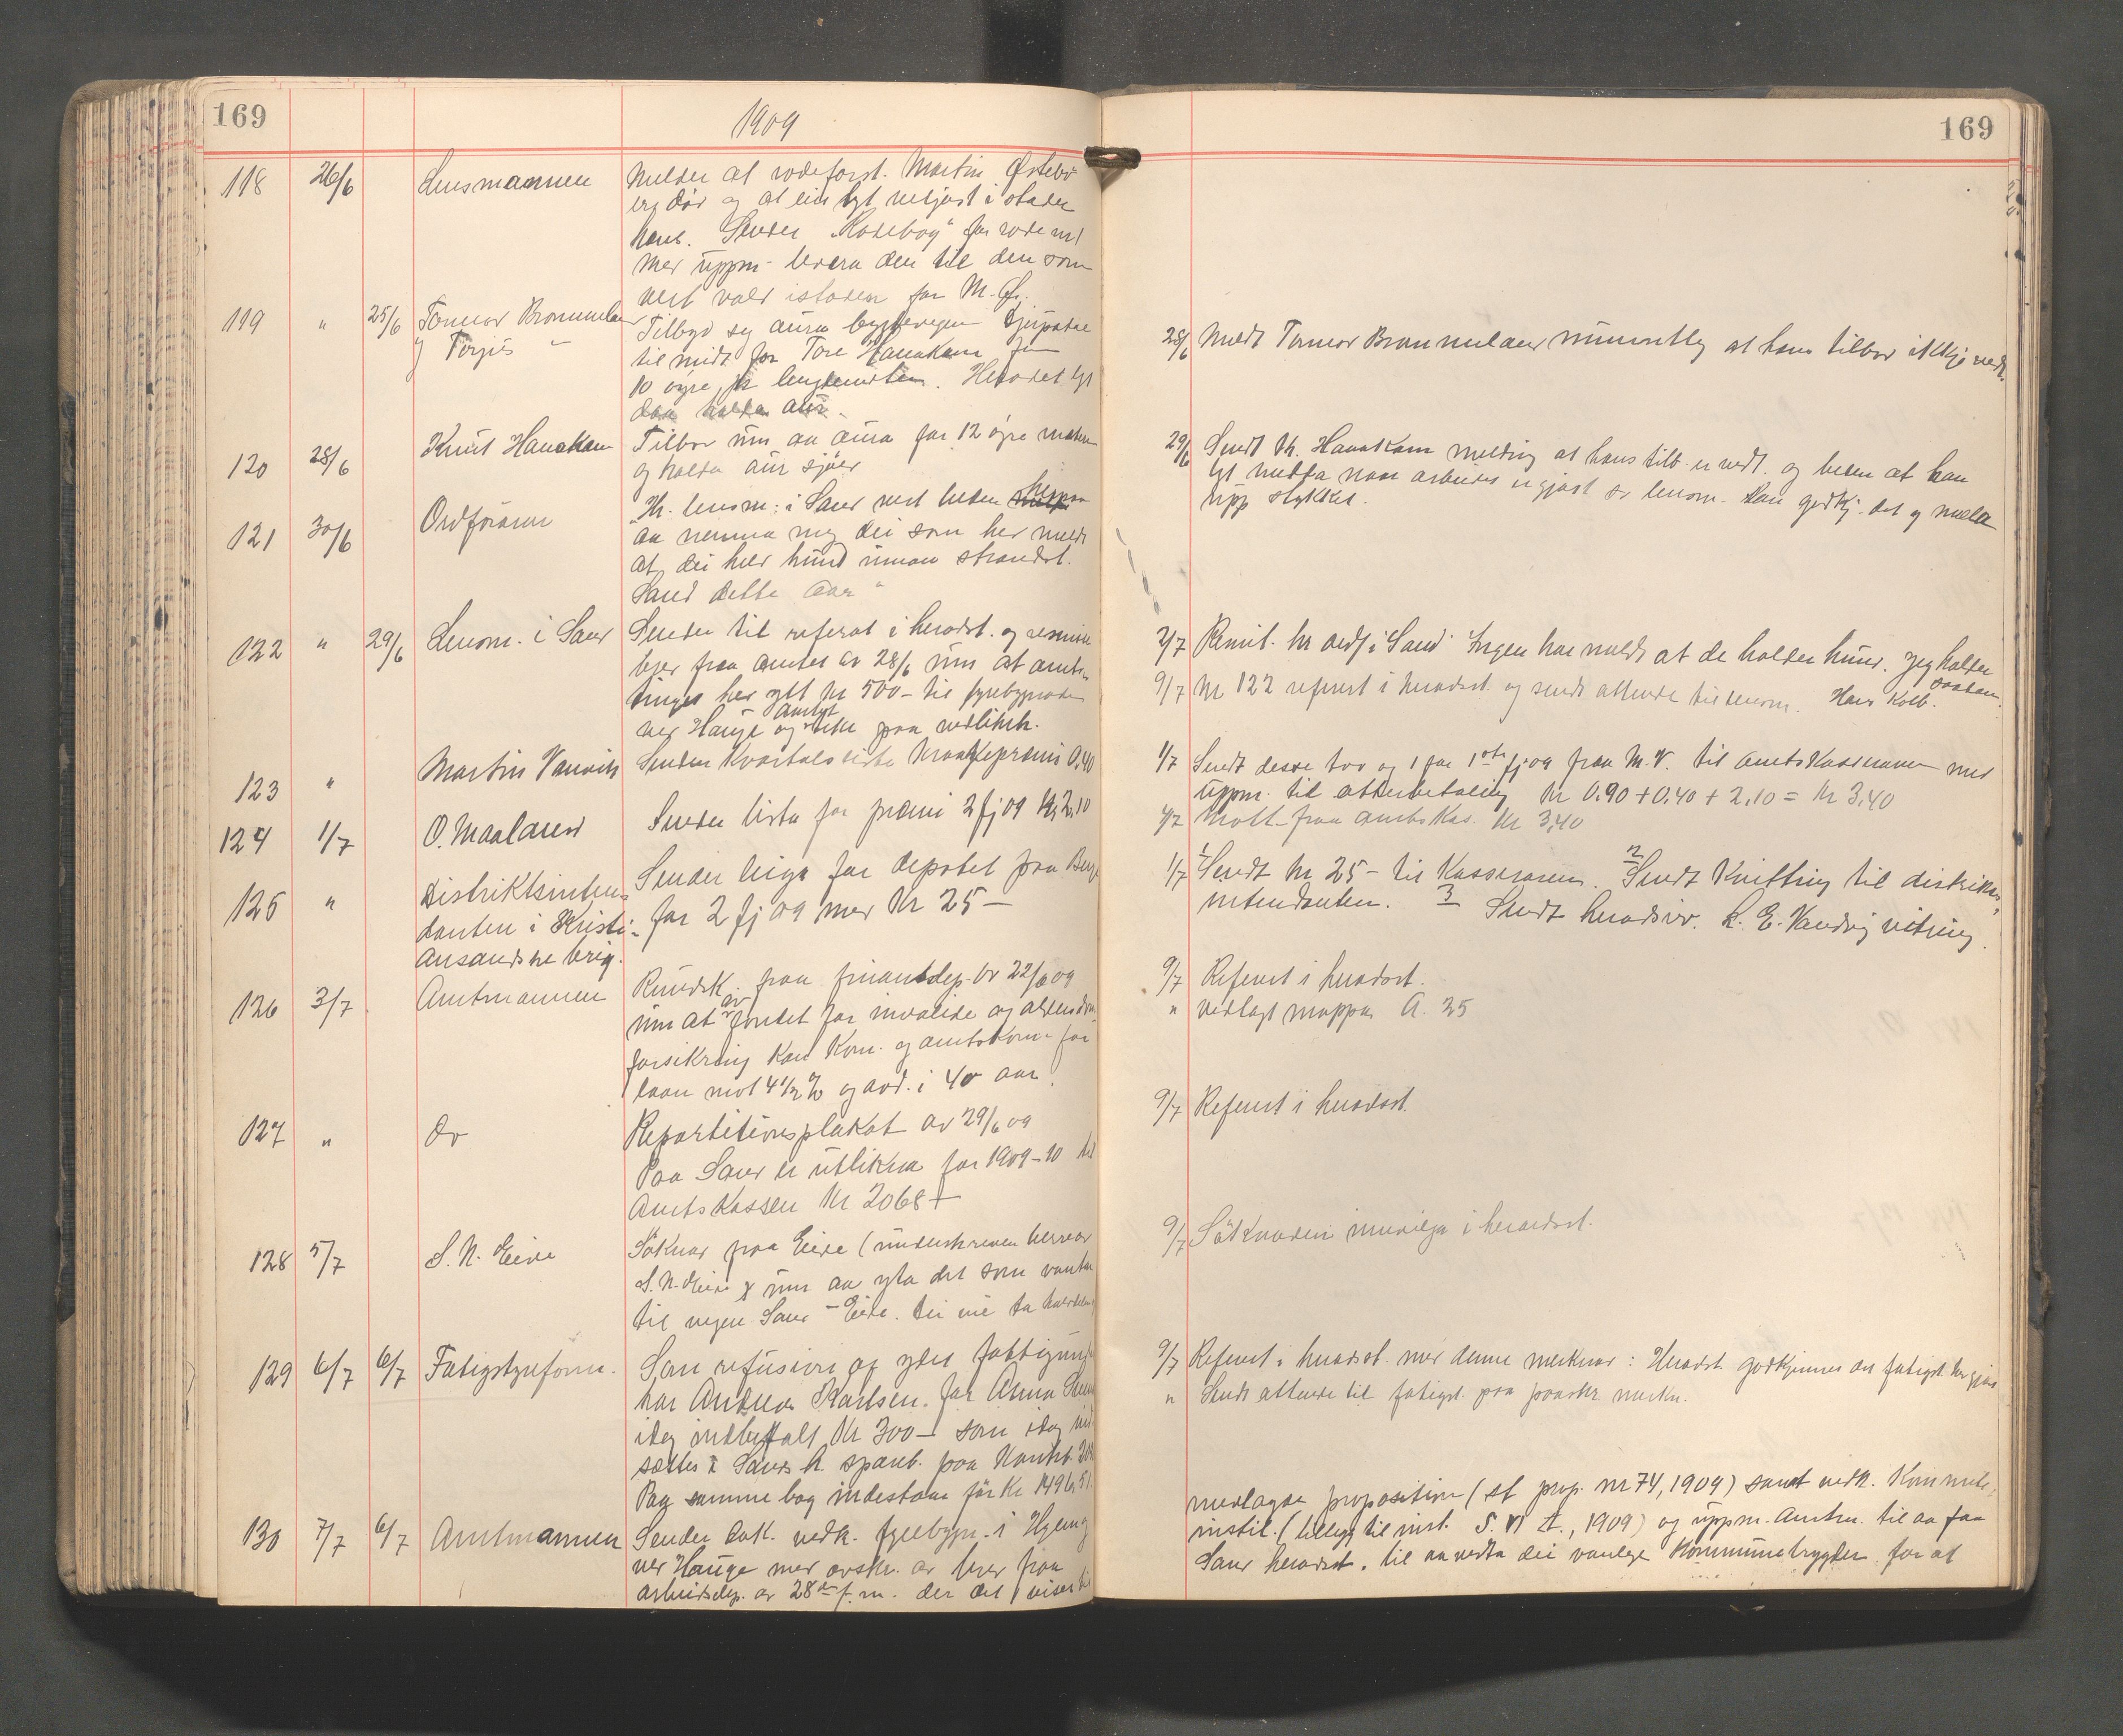 169
1909
118 26/6 Lensmannen Melder at rodeforst. Martin Østebø
er død og at ein lyt veljast i staden
hans. Sender "Rodebog" for rode nr 1
med uppm. levera den til den som
vert vald istaden for M. Ø.
119 " 25/6 Tormod Brommeland Tilbyd seg aura bygdevegen
og Terjus " til midt for Tore Hanakam for
10 øyre pr lengdemeter. Heradet lyt
daa halda aur.
120 28/6 Knut Hanakam Tilbod um aa aura for 12 øyre meteren
og halda aur sjølv
121 30/6 Ordføraren "Hr. lensm. i Sand vert beden herpaa
aa nemna meg dei som her meldt
at dei held hund innan strandst.
Sand dette aar"
122 " 29/6 Lensm. i Sand Sender til referat i heradst. og
brev fraa amtet av 28/6 um at amts-
tinget her ytt kr 500- til fyrebygnaden
ved Hauge og amtet ikke paa vedlikeh.
123 " Martin Vanvik Sender kvartalsliste kraakepræmi 0,40
124 1/7 O. Maaland Sender lista for præmi 2 fj 09 kr 2,10
125 " Distriktsinten- Sender leiga for depotet paa Berge
danten i Kristi- for 2 fj 09 med kr 25-
ansandske brig.
126 3/7 Amtmannen Rundsk. fraa finantsdep. av 22/6 09
um at av fondet for invalide og alderdoms
forsikring kan kom. og amtskom. faa
laan mot 4 1/2 % og avd. i 40 aar.
127 " Do Repartitionsplakat av 29/6 09
Paa Sand er utlikna for 1909-10 til
Amtskassen kr 2068
128 5/7 S. N. Eide Søknad fraa Eide (underskreven herrar
S. N. Eide) um aa yta det som vantar
til vegen Sand - Eide.
129 6/7 6/7 Fatigstyreform. Som refusion af ydet fattigund.
har Andreas Karlsen for Anna
idag indbetalt kr 300- som idag ind
sættes i Sands h. spareb. paa kontrab.
Paa samme bog indestaar før kr 1496,51
130 7/7 6/7 Amtmannen Sender dok. vedk. fyrebygn. i Hyleng
ved Hauge med avskr. av brev fraa
arbeidsdep. av 28de f. m. der det viser til
169
28/6 Meldt Tormod Brommeland munnleg at hans tilbod ikkje vedt.
29/6 Sendt Kn. Hanakam melding at hans tilb. er vedt. og beden at han
lyt melda naar arbeidet er gjort so lensm. kan godkj. det og mæla
upp stykket.
2/7 Remit. hr ordf i Sand Ingen har meldt at de holder hund. Jeg holder saadan.
9/7 Nr 122 referert i heradst. og sendt attende til lensm. Hans Kolb.
1/7 Sendt desse tvo og 1 for 1ste fj 09 fraa M.V. til amtskassereren med
uppm. til atterbetaling kr 0,90 + 0,40 + 2,10 = kr 3,40
Mott. fraa amtskas. kr 3,40
1/7 1 Sendt kr 25- til kassereren. 2 Sendt kvittring til distrikts-
intendanten. 3 Sendt heradsrev. L. E. Vandvig vitring.
9/7 Referert i heradst.
" vedlagt mappa A. 35
9/7 Referert i heradst.
9/7 Søknaden innvilga i heradsst.
9/7 Referert i heradst. med denne merknad: Heradst. godkjenner det fatigst. her gjort
" Sendt attende til fatigst. paa paaskr. merkn.
nedlagde proposition (st prop. nr 74, 1909) samt vedk. kommite-
instil. (tillegg til inst. S. VI A, 1909) og uppm. Amtm. til aa faa
Sand heradst. til aa vedta dei vanlege kommunetrygder for at